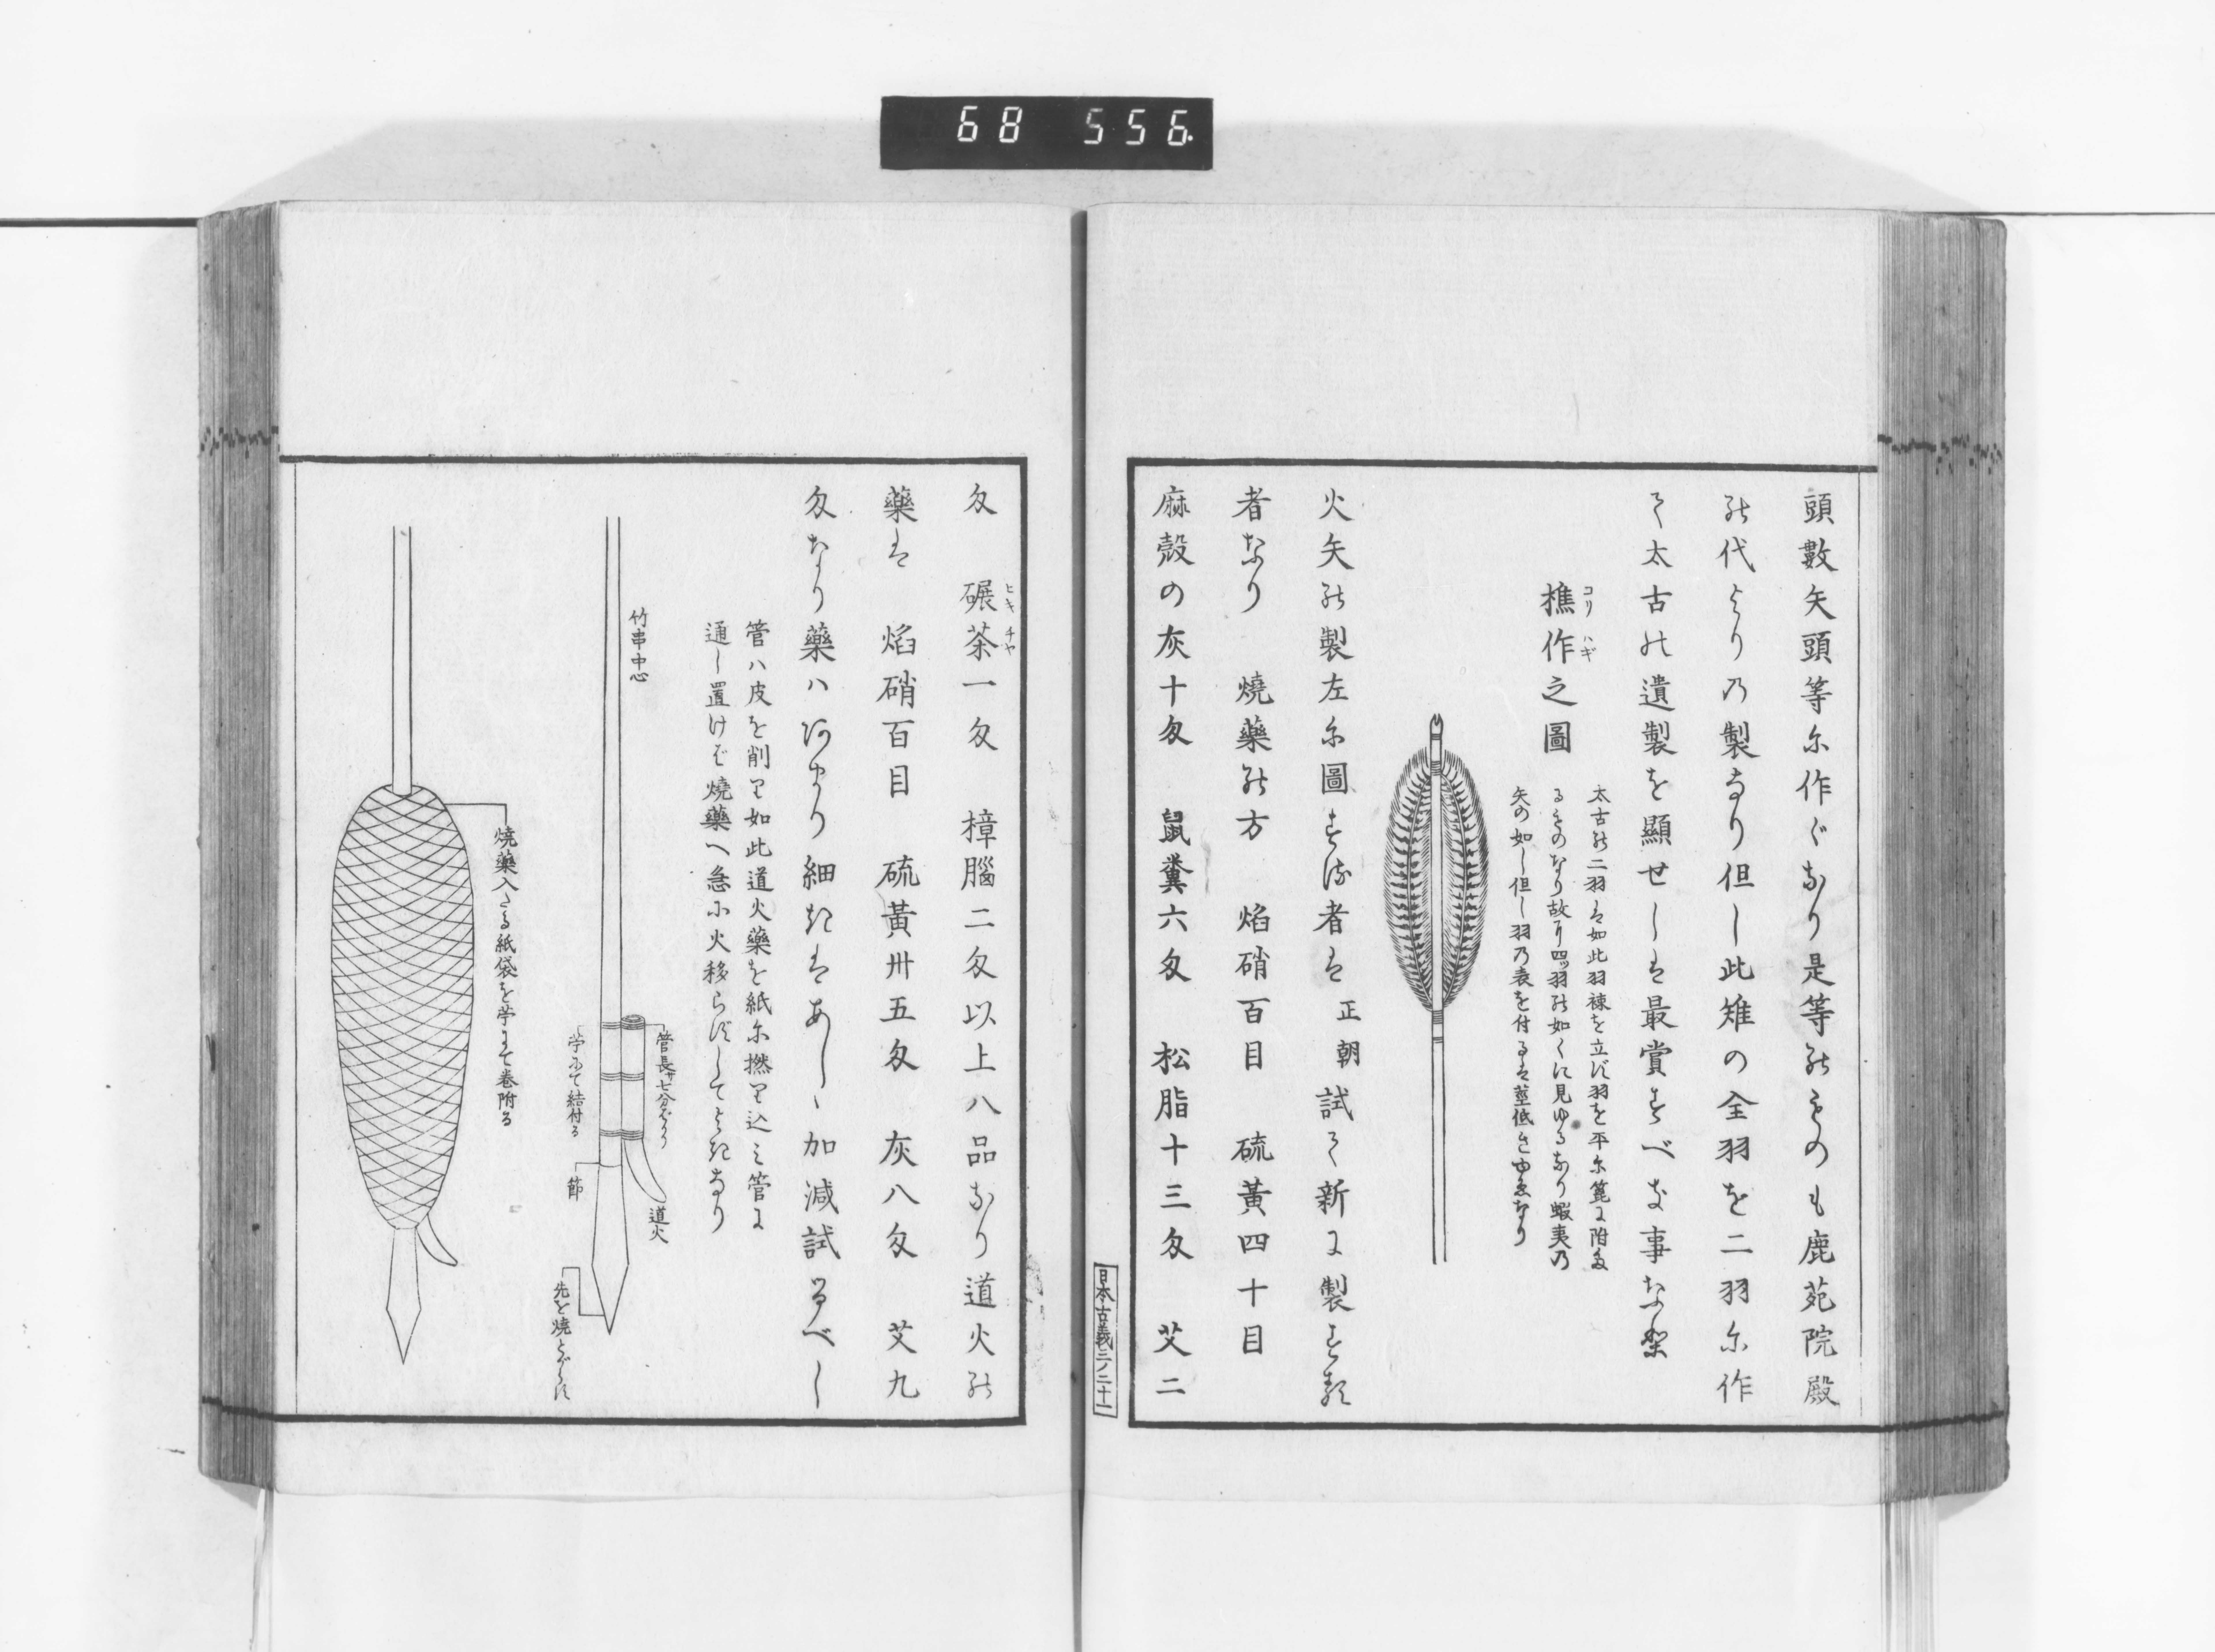 68 556
頭數矢頭等尓作ぐなり是等能ものも鹿苑院殿
能代よりの製なり但し此雉の全羽を二羽尓作
て太古能遺製を顯せしは最賞すべき事なり
樵作之圖
コリハギ
太古能二羽は如此羽棟を立ず羽を平尓箆に附た
るものなり故に四ッ羽能如くに見ゆるなり蝦夷乃
矢の如し但し羽乃表を付るは莖低きゆゑなり
火矢能製左尓圖する者は正朝試て新に製する
者なり 燒藥能方 焰硝百目 硫黃四十目
麻殻の灰十匁 鼠糞六匁 松脂十三匁 艾二
日本古義三ノ二十一
匁 碾茶一匁 樟腦二匁以上八品なり道火能
ヒキチヤ
藥は 焰硝百目 硫黃卅五匁 灰八匁 艾九
匁なり藥ハあまり細きはあしゝ加減試るべし
管ハ皮を削り如此道火藥を紙尓撚り込ミ管に
通し置けば燒藥へ急に火移らずしてよきなり
竹串中心
管長サ七分ばかり
苧にて結付る
節
道火
先を燒とがらす
燒藥入たる紙袋を苧にて卷附る